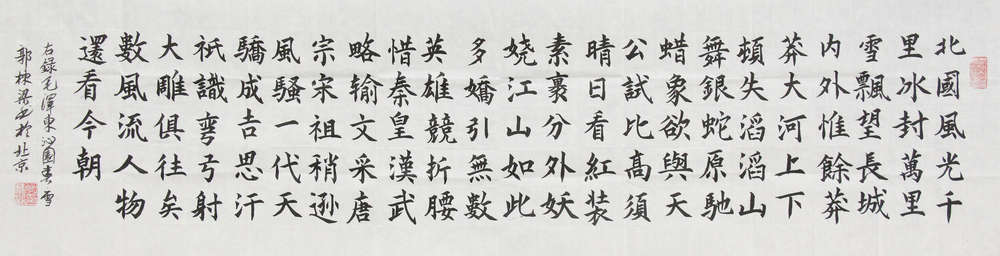 北國風光千
里冰封萬里
雪飄望長城
内外惟餘莽
莽大河上下
頓失滔滔山
舞銀蛇原馳
蜡象欲與天
公試比高須
晴日看紅装
素裹分外妖
娆江山如此
多嬌引無數
英雄競折腰
惜秦皇漢武
略输文采唐
宗宋祖稍逊
風騷一代天
驕成吉思汗
祇識彎弓射
大雕俱往矣
數風流人物
還看今朝
右錄毛澤東沁園春雪
郭棟梁书於北京